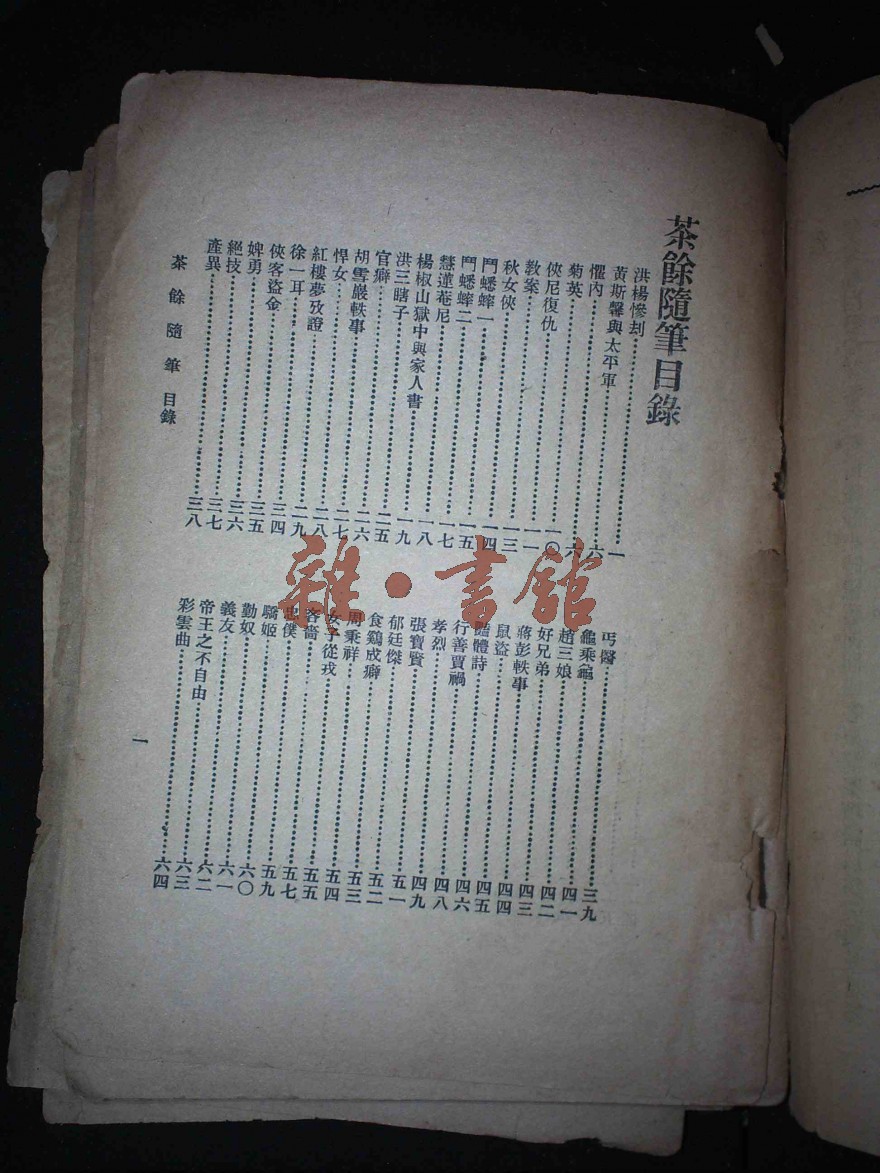 茶餘隨筆目錄
洪楊慘刦……一
黃斯馨與太平軍……六
懼內……六
菊英……一〇
俠尼復仇……一一
教案……一三
秋女俠……一四
鬥蟋蟀一……一五
鬥蟋蟀二……一七
慧蓮菴尼……一八
楊椒山獄中與家人書……一九
洪三瞎子……二五
官癖……二六
胡雪巖軼事……二七
悍女……二八
紅樓夢攷證……二九
徐一耳……三四
俠客盜金……三五
婢勇……三六
絕技……三七
產異……三八
丐醫……三九
龜乘龜……四一
趙三娘……四二
好兄弟……四三
蔣彭軼事……四四
鼠盜……四五
體詩……四六
行善賈禍……四八
孝烈……四九
張寶賢……五一
郁廷傑……五二
食鷄成癖……五三
周秉祥……五四
女子從戎……五五
吝嗇……五七
忠僕……五九
驕姬……六〇
勤奴……六一
義友……六二
帝王之不自由……六三
彩雲曲……六四
茶餘隨筆 目錄
一
雜·書館